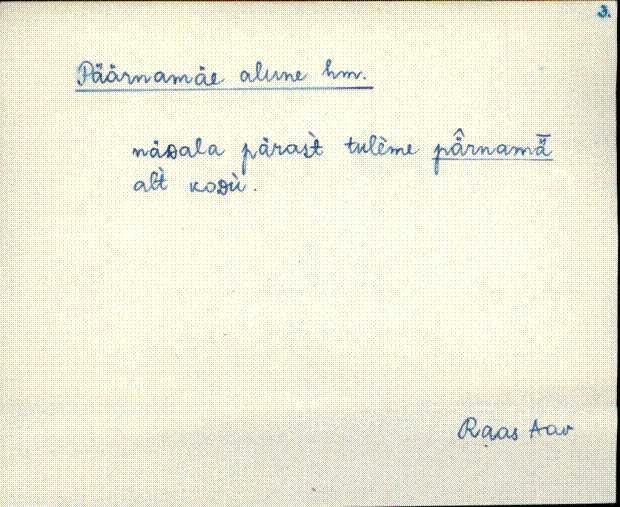 3.
Päärnamäe alune hm.
näᴅala pärast̀ tulème pä̂rnamǟ
alt̀ koᴅù.
Rạas Aav